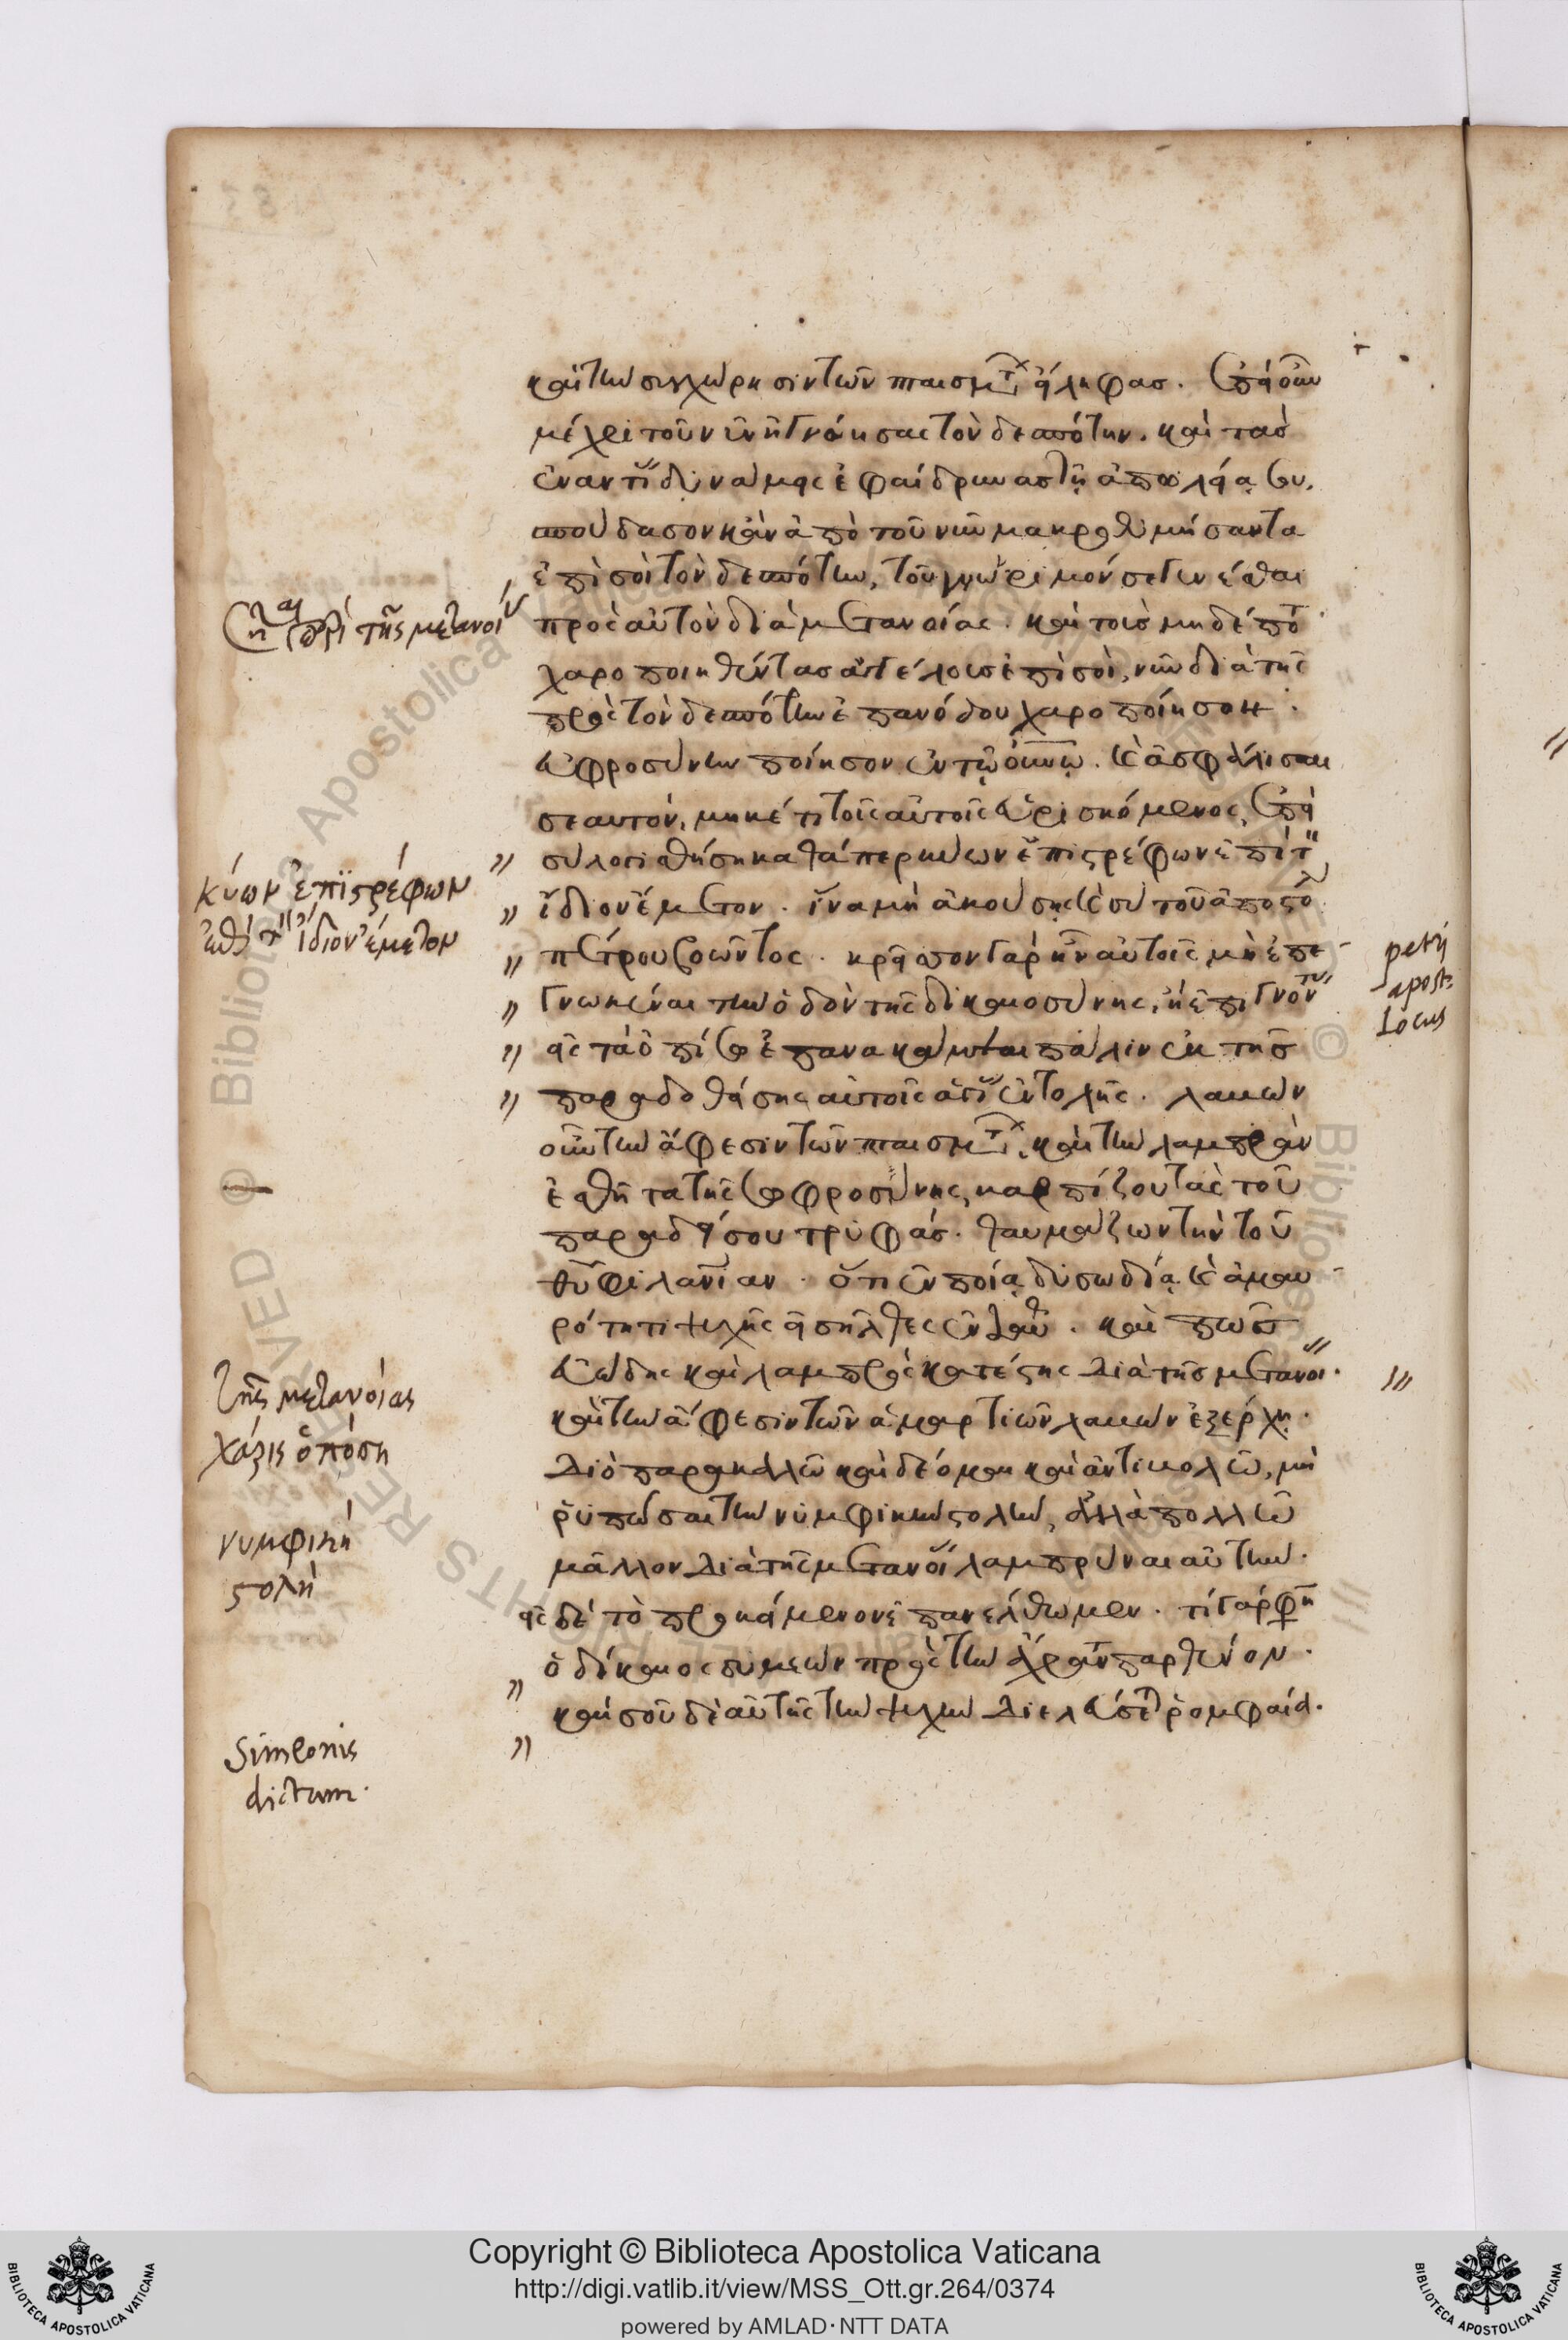 καὶ τὴν συγχώρησιν τῶν πταισμτ εἴληφας. ἐπεὶ οὖν
μέχρι τοῦ νῦν ἠγνόησας τὸν δεσπότην. καὶ τὰς
ἐναντί δυνάμεις ἐφαίδρυνας τῇ ἀπωλείᾳ σου,
σπούδασον κἂν ἀπὸ τοῦ νῦν μακροθυμήσαντα
ἐπὶ σοὶ τὸν δεσπότην, τοῦ γνώριμόν σε γενέσθαι
πρὸς αὐτὸν διὰ μετανοίας. καὶ τοὺς μηδέπο
χαροποιηθέντας ἀγγέλους ἐπὶ σοὶ, νῦν διὰ τῆς
πρὸς τὸν δεσπότην ἐπανόδου χαροποίησον.
εὐφροσύνην ποίησον ἐν τῷ οὐνῷ. καὶ ἀσφάλισαι
σεαυτὸν, μηκέτι τοῖς αὐτοῖς εὑρισκόμενος, ἐπεὶ
συλογισθήσῃ καθάπερ κύων ἐπιστρέφων ἐπὶ τ
ἴδιον ἔμετον. ἵνα μὴ ἀκούσῃς καὶ σὺ τοῦ ἀποστό
πέτρου βοῶντος. κρεῖσσον γὰρ ἦν αὐτοῖς μὴ ἐπε
γνωκέναι τὴν ὁδὸν τῆς δικαιοσύνης, ἢ ἐπιγνόντ
εἰς τὰ ὀπίσω ἐπανακάμψαι πάλιν ἐκ τῆς
παραδοθείσης αὐτοῖς ἁγί ἐντολῆς. λαβὼν
οὖν τὴν ἄφεσιν τῶν πταισμτ, καὶ τὴν λαμπρὰν
ἐσθῆτα τῆς σωφροσύνης, καρπίζου τὰς τοῦ
παραδείσου τρυφάς. θαυμάζων τὴν τοῦ
θυ φιλανίαν. ὅτι ἐν ποίᾳ δυσωδίᾳ καὶ ἀμαυ
ρότητι ψυχῆς εἰσῆλθες ἐνταῦθ. καὶ πῶς
εὐώδης καὶ λαμπρὸς κατέστης διὰ τῆς μετανοί.
καὶ τὴν ἄφεσιν τῶν ἁμαρτιῶν λαβὼν ἐξέρχῃ.
διὸ παρακαλῶ καὶ δέομαι καὶ ἀντιβολῶ, μὴ
ῥυπῶσαι τὴν νυμφικὴν στολὴν, ἀλλὰ πολλῶ
μᾶλλον διὰ τῆς μετανοί λαμπρύναι αὐτήν.
εἰς δὲ τὸ προκείμενον ἐπανέλθωμεν. τί γάρ φη
ὁ δίκαιος συμεὼν πρὸς τὴν ἄχραντ παρθένον.
καὶ σοῦ δὲ αὐτῆς τὴν ψυχὴν διελεύσετ ῥομφαία.
ση αι περὶ τῆς μετανοί
κύων ἐπιστρέφων
ἐπὶ τ ἴδιον ἔμετον
petri
apost:
locus
τῆς μετανοίας
χάρις ὁπόση
νυμφικὴ
στολὴ
Simeonis
dictum.
Copyright © Biblioteca Apostolica Vaticana
http://digi.vatlib.it/view/MSS_Ott.gr.264/0374
powered by AMLAD·NTT DATA
BIBLIOTECA APOSTOLICA VATICANA
BIBLIOTECA APOSTOLICA VATICANA